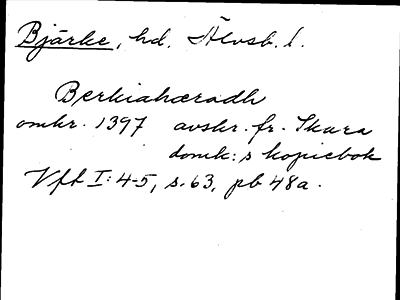 Bjärke, hd. Älvsb. l.
Berkiahæradh
omkr. 1397 avskr. fr. Skara
domk:s kopiebok
Vft I:4-5, s. 63, pb 48a.